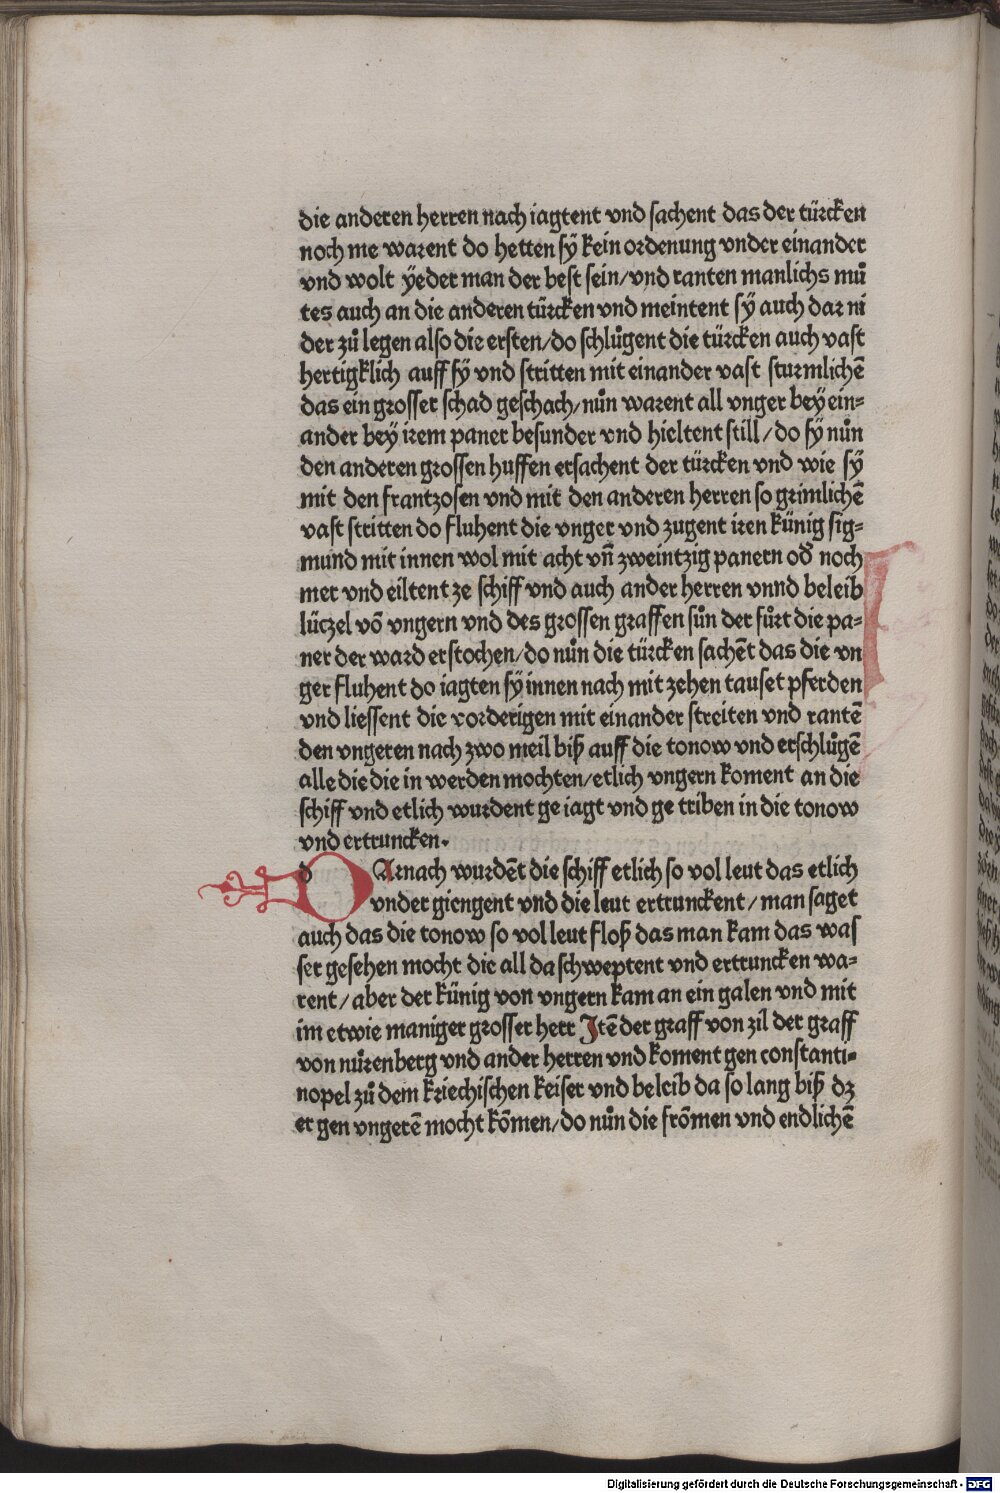 die anderen herren nach iagtent vnd sachent das der türcken
noch me warent do hetten sÿ kein ordenung vnder einander
vnd wolt ÿeder man der best sein/vnd ranten manlichs mů
tes auch an die anderen türcken vnd meintent sÿ auch dar ni
der zů legen also die ersten/do schlůgent die türcken auch vast
hertigklich auff sÿ vnd stritten mit einander vast sturmlichē
das ein grosser schad geschach/nůn warent all vnger beÿ ein-
ander beÿ irem paner besunder vnd hieltent still/do sÿ nůn
den anderen grossen huffen ersachent der türcken vnd wie sÿ
mit den frantzosen vnd mit den anderen herren so grimlichē
vast stritten do fluhent die vnger vnd zugent iren künig sig-
mund mit innen wol mit acht vn̄ zweintzig panern od̄ noch
mer vnd eiltent ze schiff vnd auch ander herren vnnd beleib
lüczel vō vngern vnd des grossen graffen sůn der fůrt die pa-
ner der ward erstochen/do nůn die türcken sachēt das die vn
ger fluhent do iagten sÿ innen nach mit zehen tauset pferden
vnd liessent die vorderigen mit einander streiten vnd rantē
den vngeren nach zwo meil biß auff die tonow vnd erschlůgē
alle die die in werden mochten/etlich vngern koment an die
schiff vnd etlich wurdent ge iagt vnd ge triben in die tonow
vnd ertruncken.
DArnach wurdēt die schiff etlich so vol leut das etlich
vnder giengent vnd die leut ertrunckent/man saget
auch das die tonow so vol leut floß das man kam das was
ser gesehen mocht die all da schweptent vnd ertruncken wa-
rent/aber der künig von vngern kam an ein galen vnd mit
im etwie maniger grosser herr Itē der graff von zil der graff
von nůrenberg vnd ander herren vnd koment gen constanti-
nopel zů dem kriechischen keiser vnd beleib da so lang biß dz
er gen vngerē mocht kōmen/do nůn die frōmen vnd endlichē
Digitalisierung gefördert durch die Deutsche Forschungsgemeinschaft - DFG